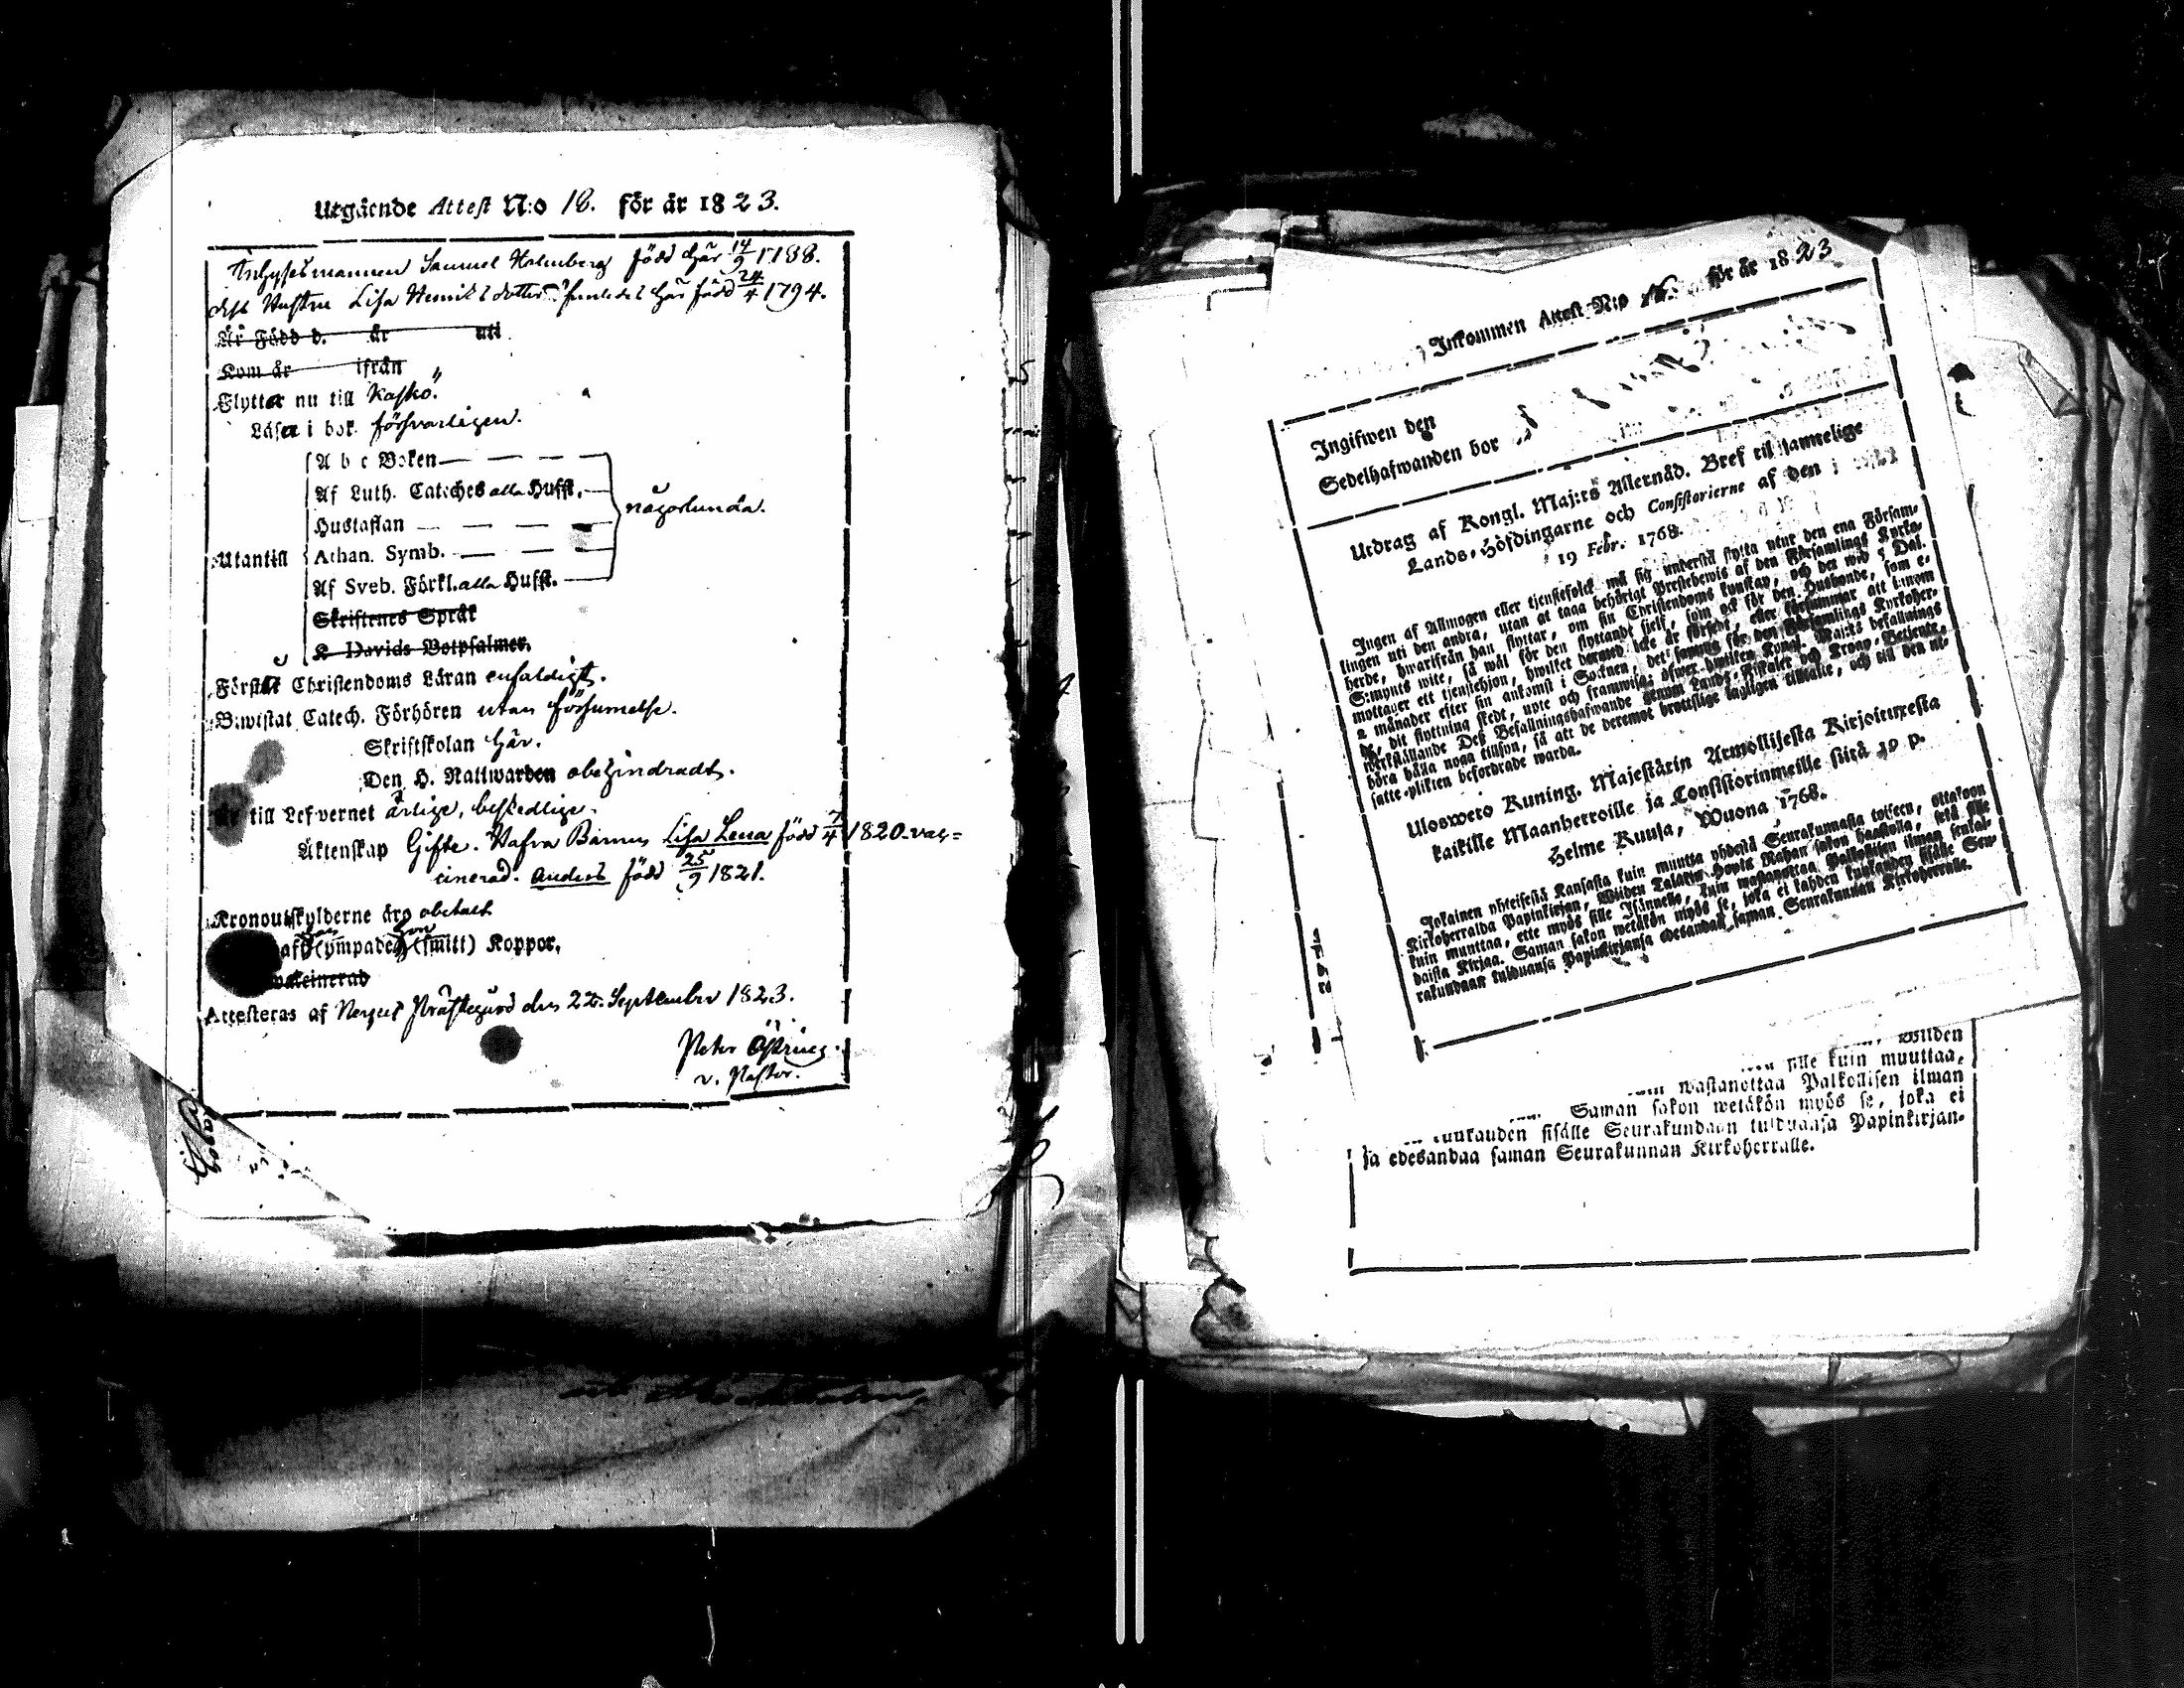 Utgående Attest N:o 18. för år 1823.
Inhysesmannen Samuel Holmberg född här 14/9 1788.
dess Hustru Lisa Henriksdotter född 24/4 1794.
Är Född d. år uti
Kom år ifrån
Flyttar nu till Kaskö.
Läsa i bok försvarligen.
A b c Boken
Af Luth. Cateches alla Hufst.
Hustaflan
någorlunda.
Utantill Athan. Symb.
Af Sveb. Förkl. alla Hufst.
Skriftenes Språk
K Davids Botpsalmer.
Förstår Christendoms Läran enfaldigt.
Biwistat Catech. Förhören utan försumelse.
Skriftskolan här.
Den H. Nattwarden obehindradt.
till Lefvernet ärlige, beskedlige.
Äktenskap Gifte. Hafva Barnen Lisa Lena född 7/4 1820 vac=
cinerad. Anders född 25/9 1821.
Kronoutskylderne äro obetalt
haft (ympade) (smitt) Koppor.
vaccinerad
Attesteras af Nerpes Prästegård den 22. September 1823.
Peter Östring.
v. Pastor.
Inkommen Attest N:o 16. för år 1823
Ingifwen den
Sedelhafwanden bor
Utdrag af Kongl. Maj:ts Allernåd. Bref till samtelige
Lands-Höfdingarne och Consistorierne af den
19 Febr. 1768.
Ingen af Allmogen eller tjenstefolck må sig understå flytta utur den ena Försam-
lingen uti den andra, utan at taga behörigt Prestebewis af den Församlings Kyrko-
herde, hwarifrån han flyttar, om sin Christendoms kunskap, och det wid 5 Dal.
S:mynts wite, så wäl för den flyttande sielf, som ock för den Husbonde, som e-
mottager ett tjenstehjon, hwilket dermed icke är försedt, eller försummar att innom
2 månader efter sin ankomst i Socknen, det samma för den Församlings Kyrkoher-
de, dit flyttning skedt, upte och framwisa; öfwer hwilken Kongl. Maj:ts befallnings
werkställande Dess Befallningshafwande genom Lands-Fiskaler och Krono-Betjente,
böra hålla noga tillsyn, så att de deremot brottslige lagligen tilltalte, och till den ut-
satte plikten befordrade warda.
Uloswetto Kuning. Majestätin Armollisesta Kirjoituxesta
kaikille Maanherroille ja Consistoriumeille siitä 19 p.
Helme Kuusa, Wuona 1768.
Jokainen yhteisestä Kansasta kuin muutta yhdestä Seurakunnasta toiseen, ottakoon
Kirkoherralda Papinkirjan, Wiiden Talarin Hopia Rahan sakon haastolla, sekä sille
kuin muuttaa, ette myös sille Isännelle, kuin wastanottaa Palkollisen ilman senkal-
daista Kirjaa. Saman sakon wetäkön myös se, joka ei kahden kuukauden sisälle Seu-
rakundaan tulduansa Papinkirjansa edesandaa saman Seurakunnan Kirkoherralle.
Wiiden
sille kuin muuttaa,
wastanottaa Palkollisen ilman
Saman sakon wetäkön myös se, joka ei
kuukauden sisälle Seurakundaan tulduansa Papinkirjan-
sa edesandaa saman Seurakunnan Kirkoherralle.